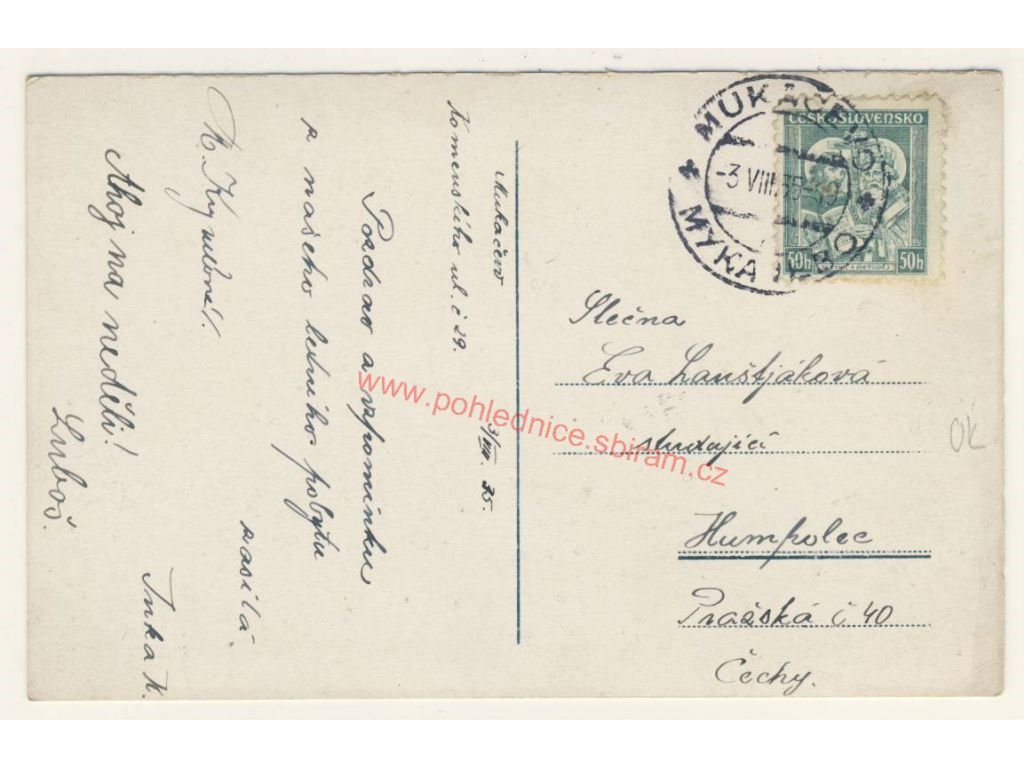 Mukačevo 3/VIII. 35.
Komenského ul. č 29.
Pozdrav a vzpomínku
z našeho letního pobytu
zasílá
Inka K.
Ahoj na neděli!
Luboš.
ČESKOSLOVENSKO
50h 50h
MUKAČEVO
-3.VIII.35-
Slečna
Eva Lanštjáková
studující
Humpolec
Pražská č 40
Čechy.
OK
www.pohlednice.sbiram.cz